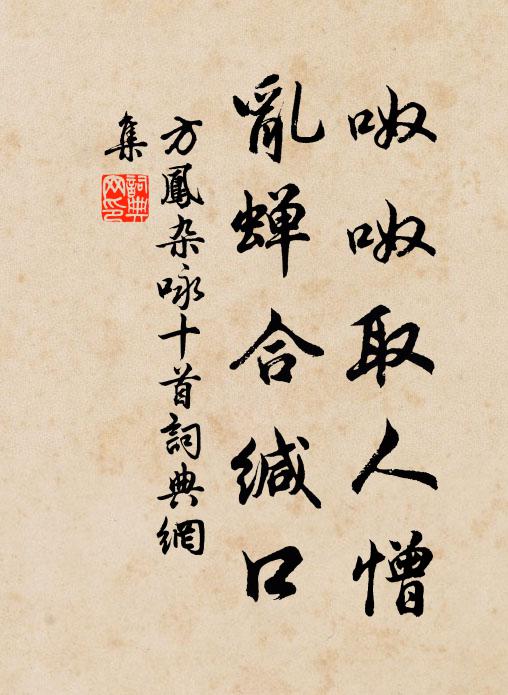 呶呶取人憎
亂蝉合緘口
方鳳杂咏十首詞典網
集
詞典网印